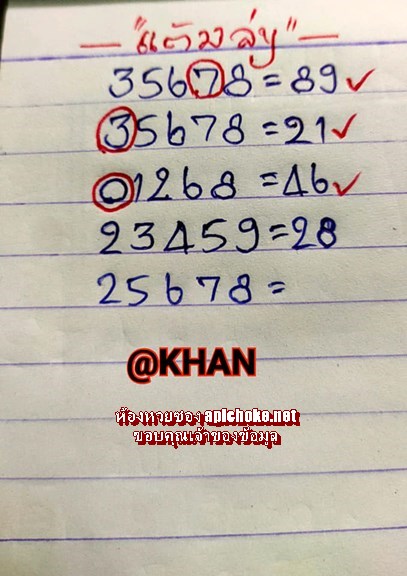 — "แต้มลุ่ย" —
35678 = 89 ✓
35678 = 21 ✓
01268 = 46 ✓
23459 = 28
25678 =
@KHAN
ห้องหวยซอง apichoke.net
ขอบคุณเจ้าของข้อมูล